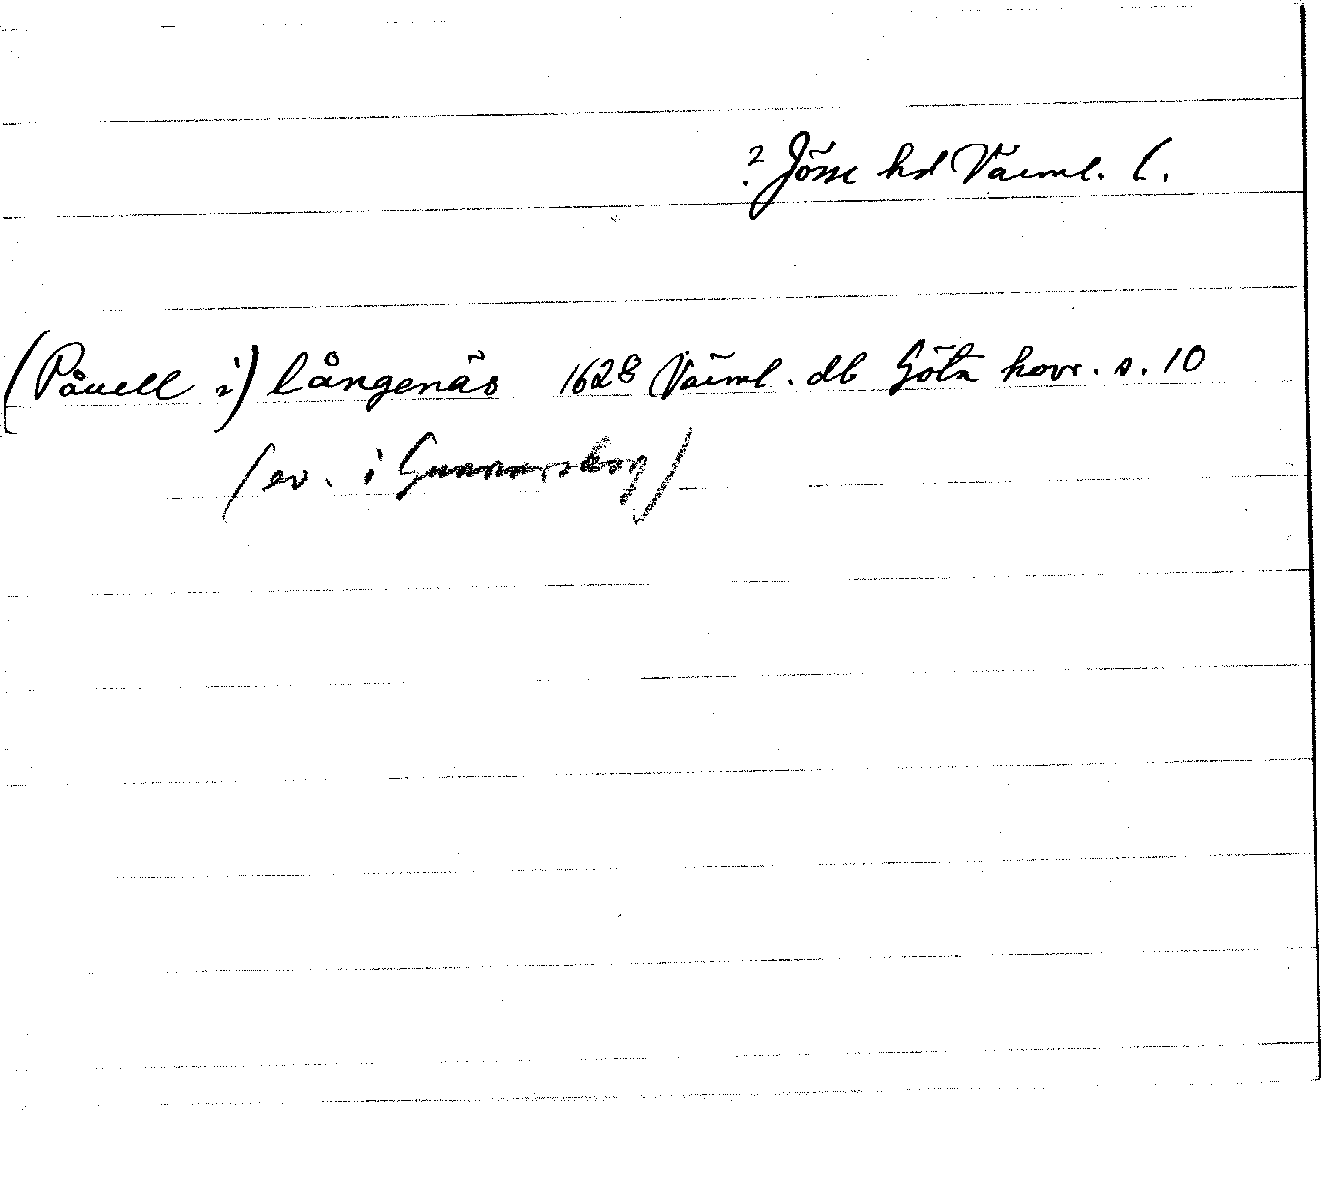 ? Jösse hd Värml. l.
(Påuell i) långenäs 1628 Värml. db Göta hovr. s. 10
(ev. i Gunnarskog)